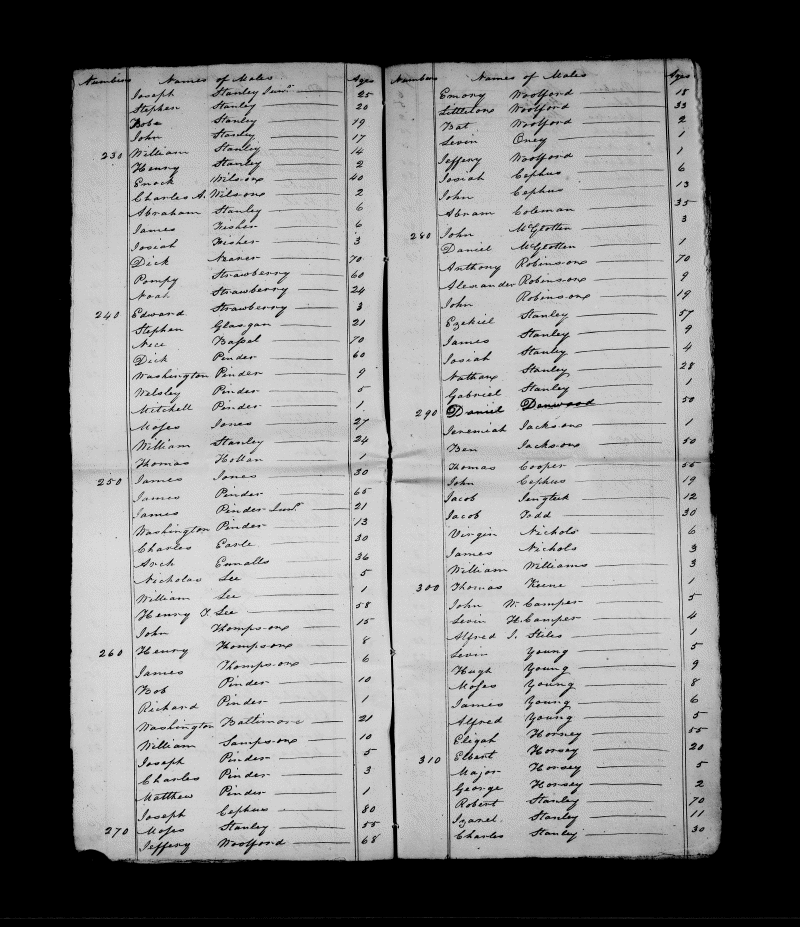 Numbers Names of Males Ages
Joseph Stanley Junr 25
Stephen Stanley 20
Bobe Stanley 19
John Stanley 17
230 William Stanley 14
Henry Stanley 2
Enock Wilsone 40
Charles A. Wilsone 2
Abraham Stanley 6
James Fisher 6
Josiah Fisher 3
Dick 70
Pompy Strawberry 60
Noah Strawberry 24
240 Edward Strawberry 3
Stephen Glasgan 21
Nece Bassel 70
Dick Pinder 60
Washington Pinder 9
Welsley Pinder 5
Mitchell Pinder 1
Moses Jones 27
William Stanley 24
Thomas Hollan 1
250 James Jones 30
James Pinder 65
James Pinder Junr 21
Washington Pinder 13
Charles Earle 30
Arch Ennalls 36
Nicholas Lee 5
William Lee 1
Henry T. Lee 58
John Thompsone 15
260 Henry Thompsone 8
James Thompsone 6
Bob Pinder 10
Richard Pinder 1
Washington Baltimore 21
William Sampsone 10
Joseph Pinder 5
Charles Pinder 3
Matthew Pinder 1
Joseph Cephus 80
270 Moses Stanley 55
Jeffery Woolford 68
Numbers Names of Males Ages
Emory Woolford 18
Littletone Woolford 33
Bat Woolford 2
Levin Oney 1
Jeffery Woolford 1
Josiah Cephus 6
John Cephus 13
Abram Coleman 35
280 John McGlotten 3
Daniel McGlotten 1
Anthony Robinsone 70
Alexander Robinsone 9
John Robinsone 19
Ezekiel Stanley 57
James Stanley 9
Josiah Stanley 4
Nathan Stanley 28
Gabriel Stanley 1
290 Daniel Denwood 50
Jeremiah Jacksone 1
Ben Jacksone 50
Thomas Cooper 55
John Cephus 19
Jacob 12
Jacob Todd 30
Virgin Nichols 6
James Nichols 3
William Williams 3
300 Thomas Keene 1
John W. Camper 5
Levin H. Camper 4
Alfred J. Stiles 1
Levin Young 5
Hugh Young 9
Moses Young 8
James Young 6
Alfred Young 5
Eligah Horsey 55
310 Elbert Horsey 20
Major Horsey 5
George Horsey 2
Robert Stanley 70
Izarel Stanley 11
Charles Stanley 30